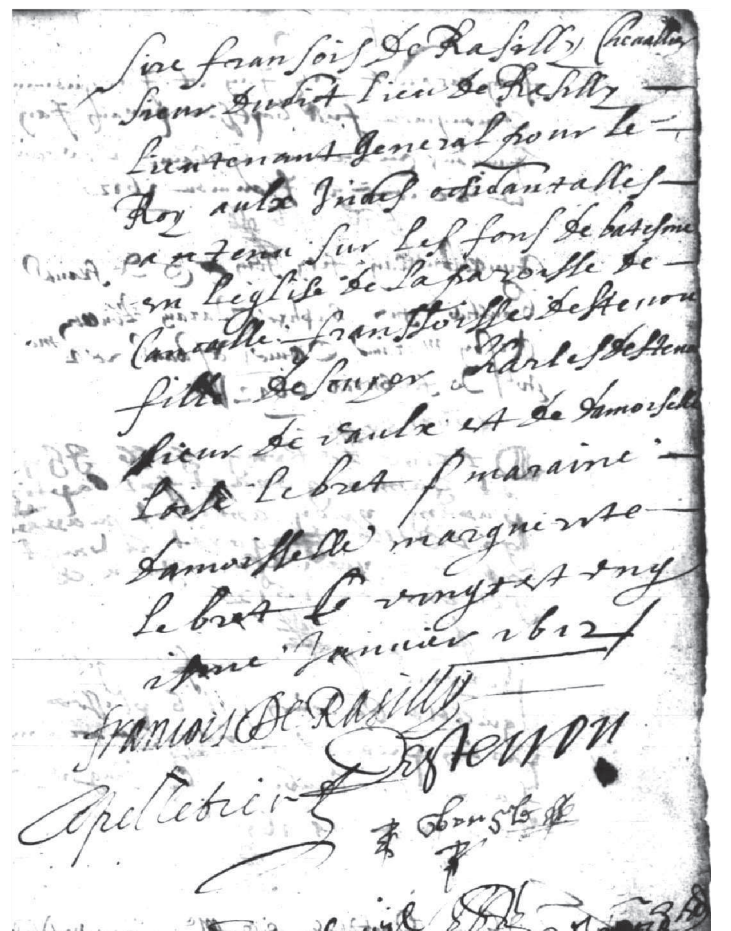 sire fransois de Rasilly Chevallier
sieur dudict lieu de Rasilly
Lieutenant General pour le
Roy aulx Indes ocsidantalles
a tenu sur les fons de batesme
en l'eglise de la paroisse de
franssoisse destenou
fille de Charles destenou
sieur de vaulx et de damoiselle
loise lebret maraine
damoisselle marguerite
lebret le vingt et ung
iesme Janvier 1612
francois De Rasilly
Destenou
Apelletier